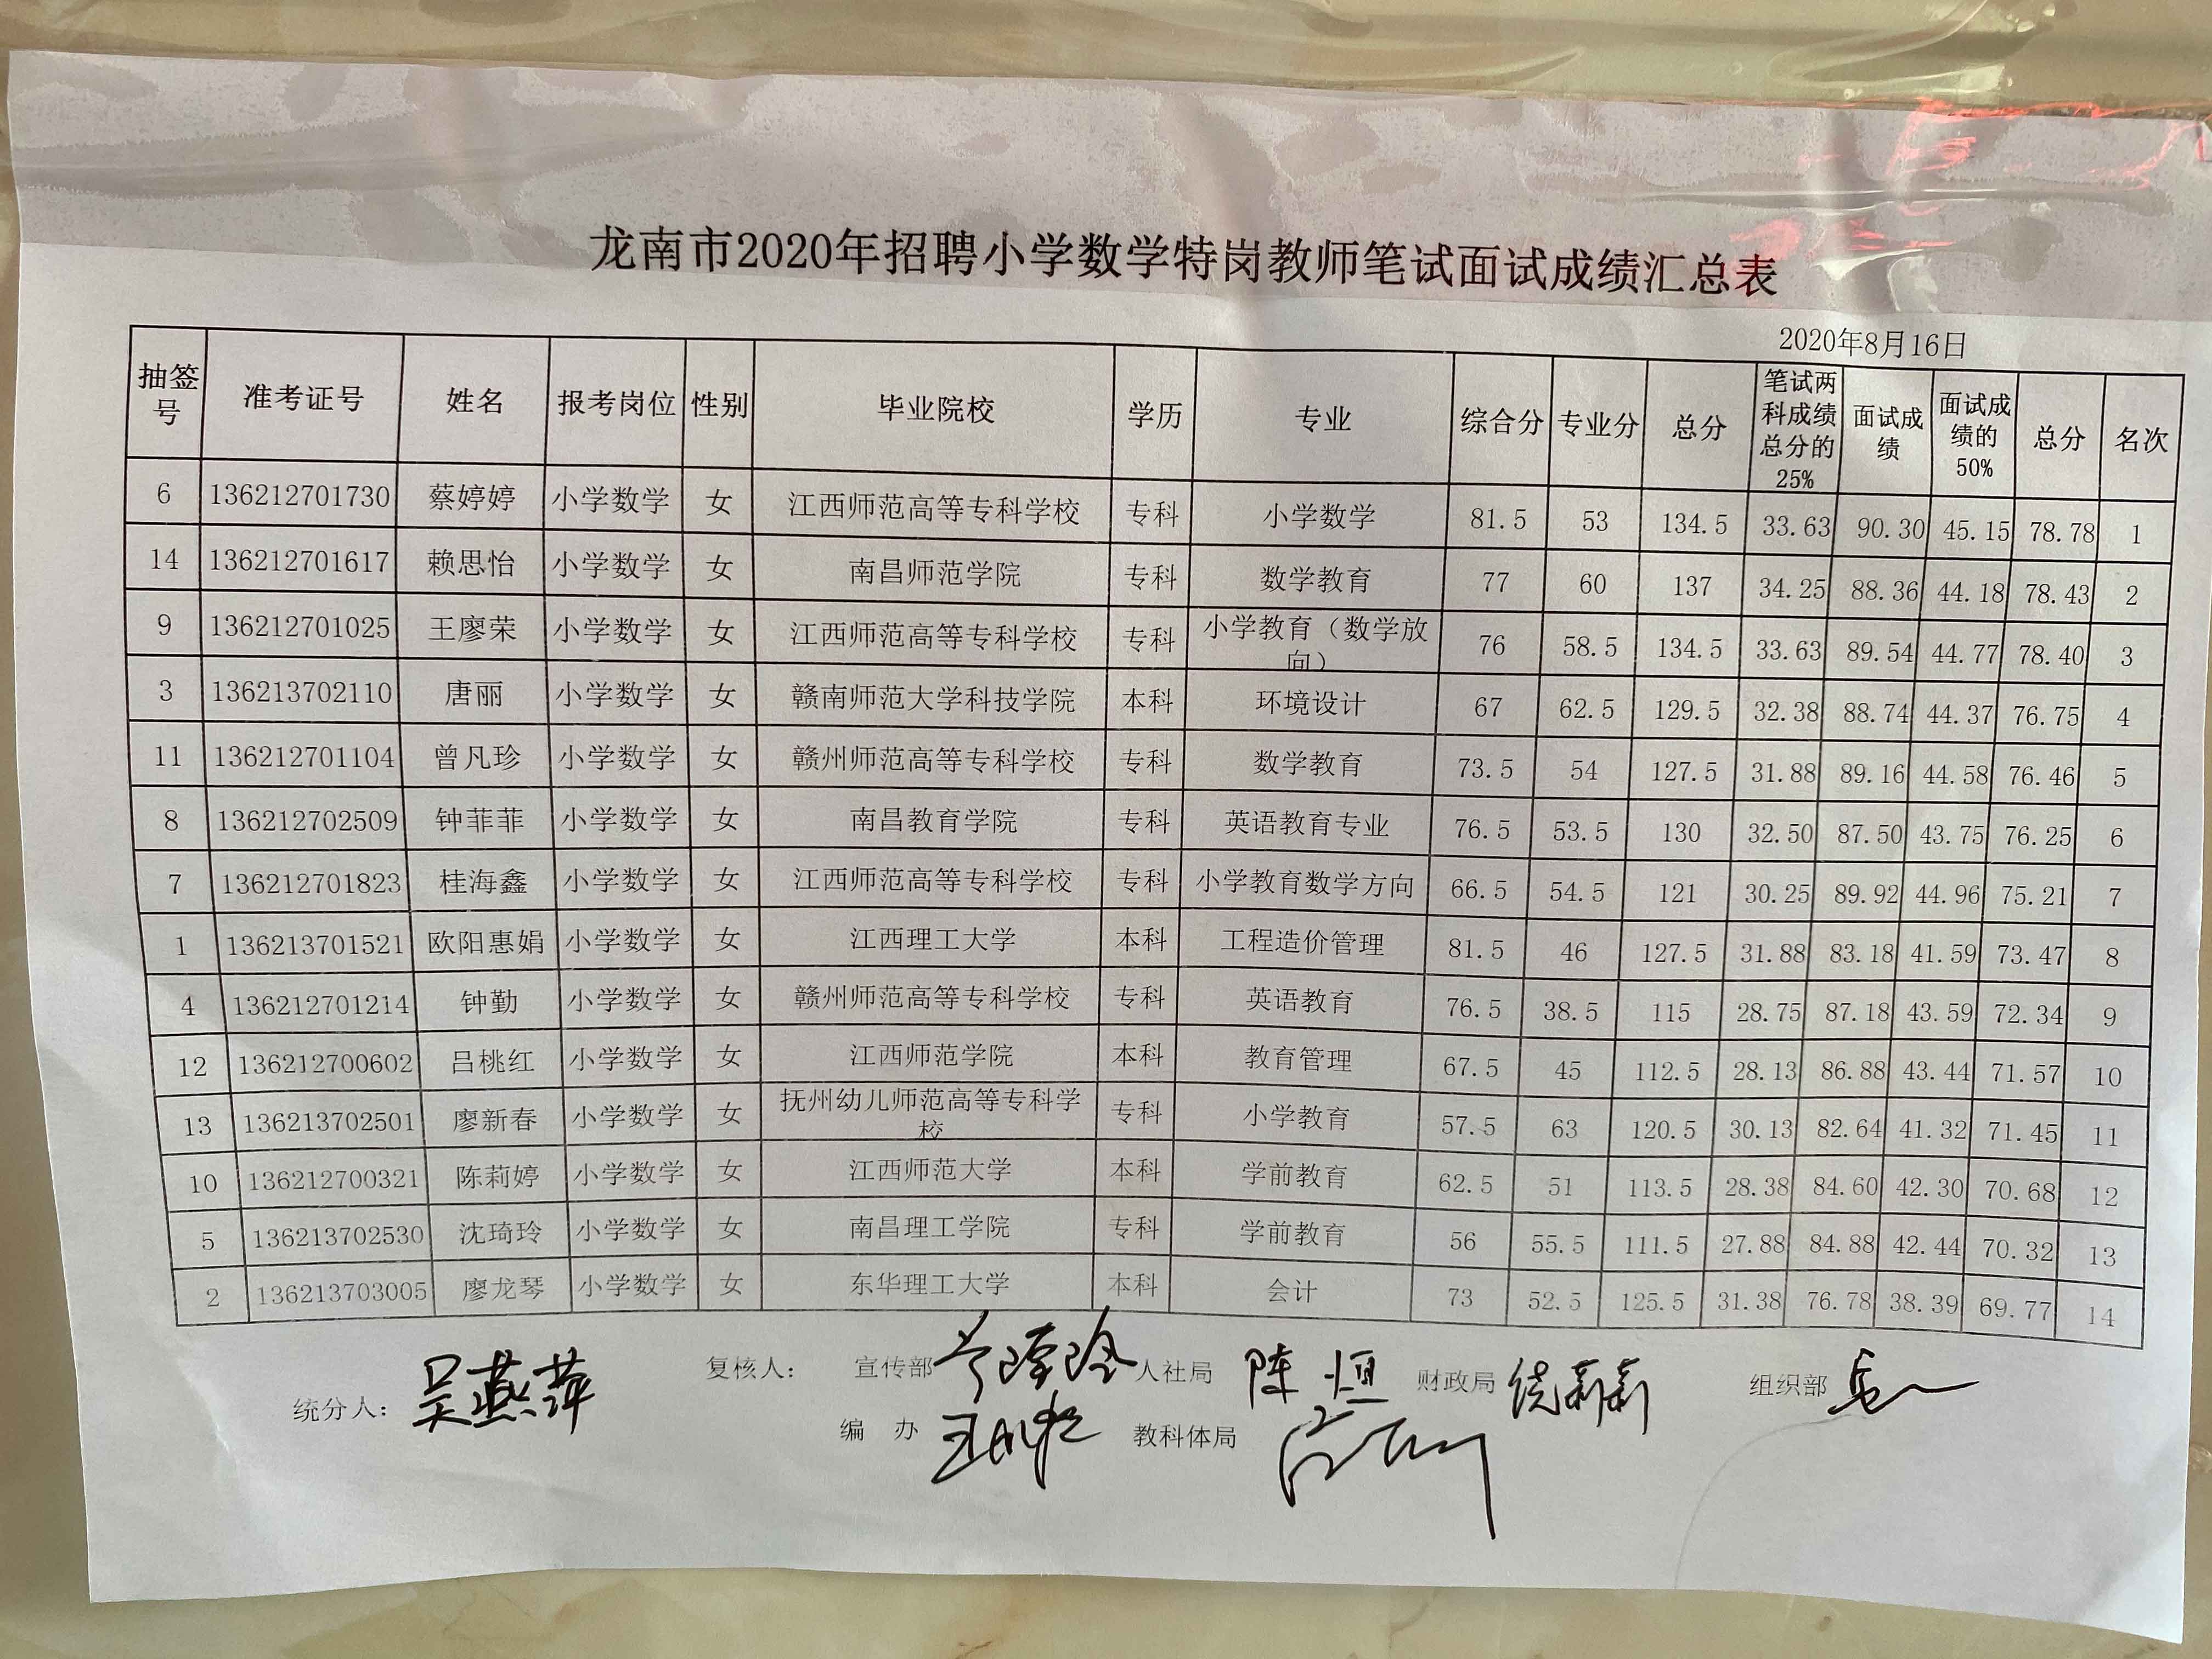 龙南市2020年招聘小学数学特岗教师笔试面试成绩汇总表
2020年8月16日
抽签号 准考证号 姓名 报考岗位 性别 毕业院校 学历 专业 综合分 专业分 总分 笔试两科成绩总分的25% 面试成绩 面试成绩的50% 总分 名次
6 136212701730 蔡婷婷 小学数学 女 江西师范高等专科学校 专科 小学数学 81.5 53 134.5 33.63 90.30 45.15 78.78 1
14 136212701617 赖思怡 小学数学 女 南昌师范学院 专科 数学教育 77 60 137 34.25 88.36 44.18 78.43 2
9 136212701025 王廖荣 小学数学 女 江西师范高等专科学校 专科 小学教育（数学放向） 76 58.5 134.5 33.63 89.54 44.77 78.40 3
3 136213702110 唐丽 小学数学 女 赣南师范大学科技学院 本科 环境设计 67 62.5 129.5 32.38 88.74 44.37 76.75 4
11 136212701104 曾凡珍 小学数学 女 赣州师范高等专科学校 专科 数学教育 73.5 54 127.5 31.88 89.16 44.58 76.46 5
8 136212702509 钟菲菲 小学数学 女 南昌教育学院 专科 英语教育专业 76.5 53.5 130 32.50 87.50 43.75 76.25 6
7 136212701823 桂海鑫 小学数学 女 江西师范高等专科学校 专科 小学教育数学方向 66.5 54.5 121 30.25 89.92 44.96 75.21 7
1 136213701521 欧阳惠娟 小学数学 女 江西理工大学 本科 工程造价管理 81.5 46 127.5 31.88 83.18 41.59 73.47 8
4 136212701214 钟勤 小学数学 女 赣州师范高等专科学校 专科 英语教育 76.5 38.5 115 28.75 87.18 43.59 72.34 9
12 136212700602 吕桃红 小学数学 女 江西师范学院 本科 教育管理 67.5 45 112.5 28.13 86.88 43.44 71.57 10
13 136213702501 廖新春 小学数学 女 抚州幼儿师范高等专科学校 专科 小学教育 57.5 63 120.5 30.13 82.64 41.32 71.45 11
10 136212700321 陈莉婷 小学数学 女 江西师范大学 本科 学前教育 62.5 51 113.5 28.38 84.60 42.30 70.68 12
5 136213702530 沈琦玲 小学数学 女 南昌理工学院 专科 学前教育 56 55.5 111.5 27.88 84.88 42.44 70.32 13
2 136213703005 廖龙琴 小学数学 女 东华理工大学 本科 会计 73 52.5 125.5 31.38 76.78 38.39 69.77 14
统分人： 吴燕萍 复核人： 宣传部 人社局 陈恒 财政局 组织部
编 办 教科体局